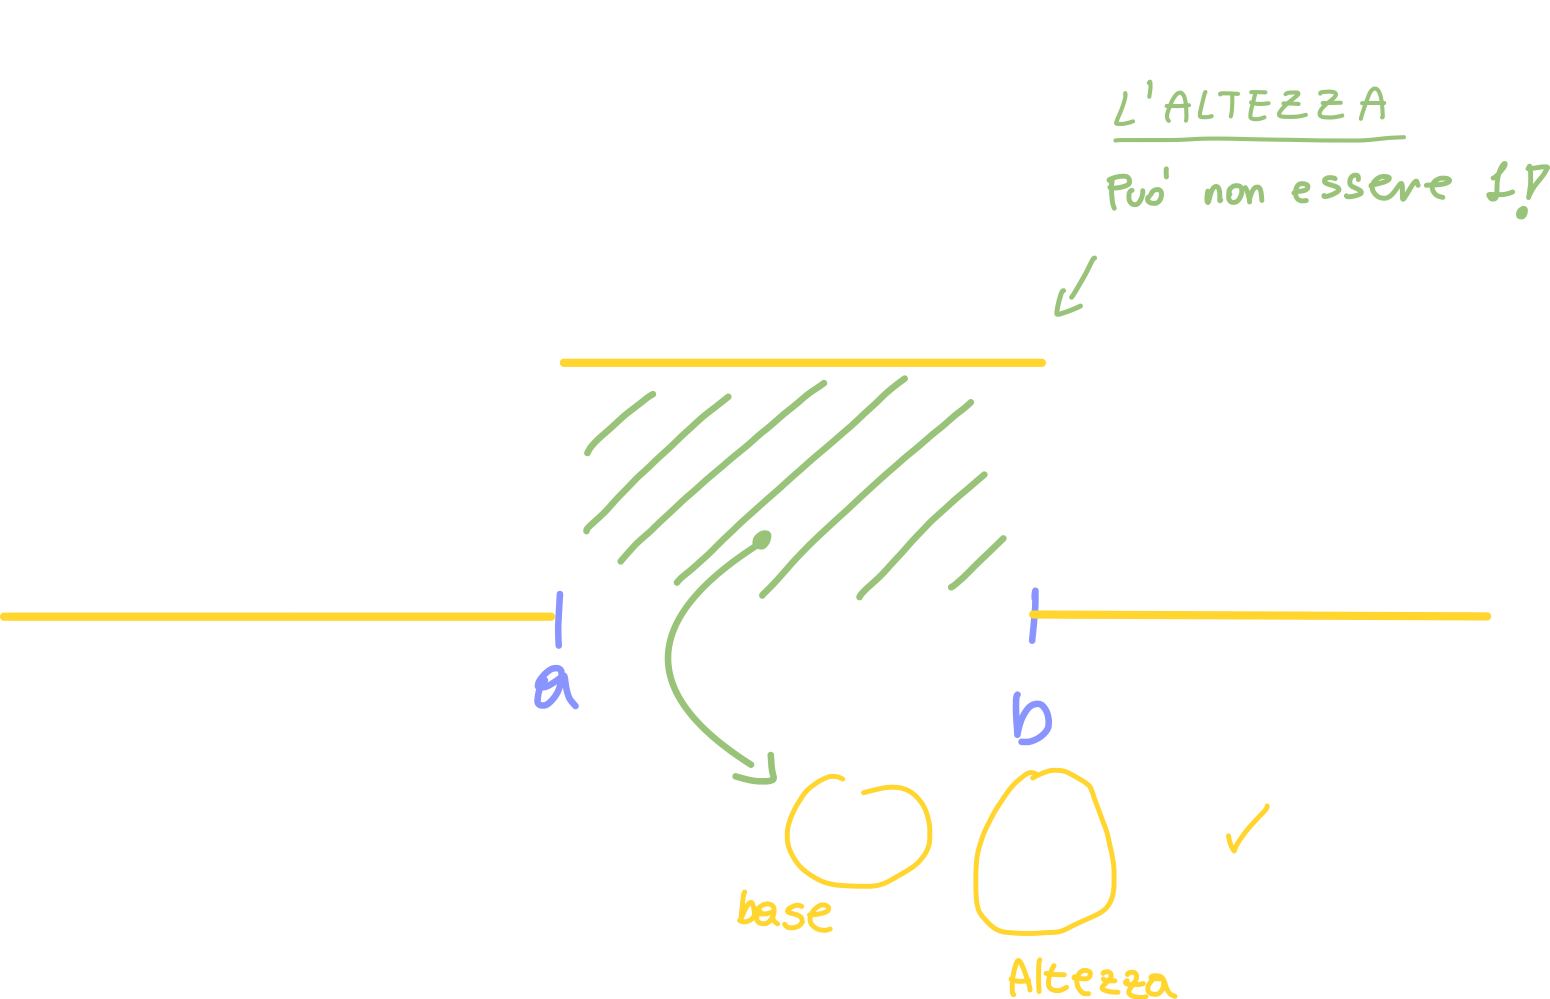 L'ALTEZZA
Può non essere 1!
a
b
base
Altezza